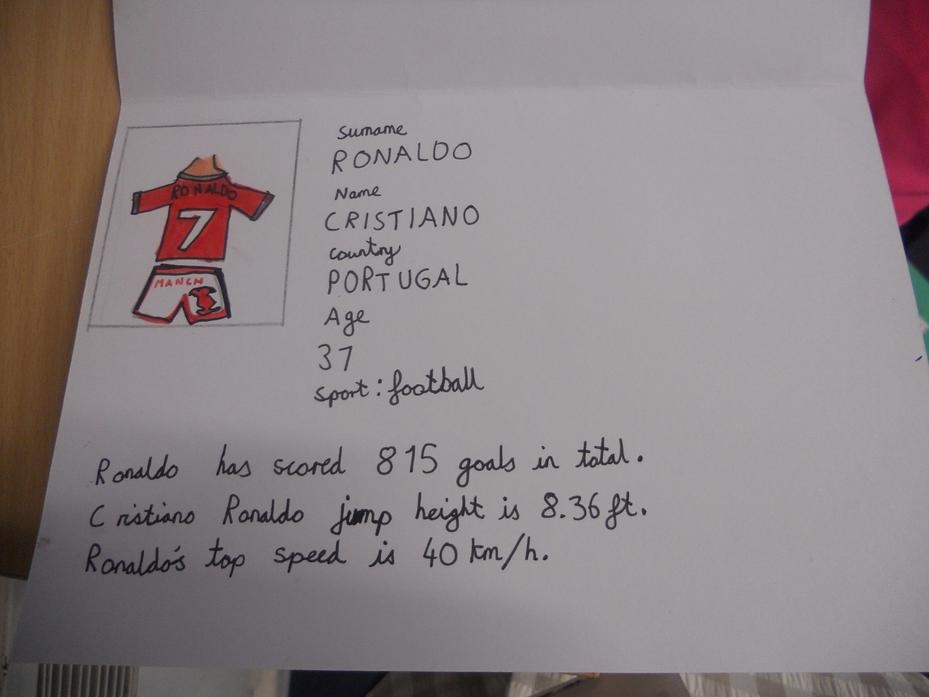 RONALDO
7
Surname
RONALDO
Name
CRISTIANO
Country
PORTUGAL
Age
37
Sport: football
Ronaldo has scored 815 goals in total.
Cristiano Ronaldo jump height is 8.36 ft.
Ronaldo's top speed is 40 km/h.